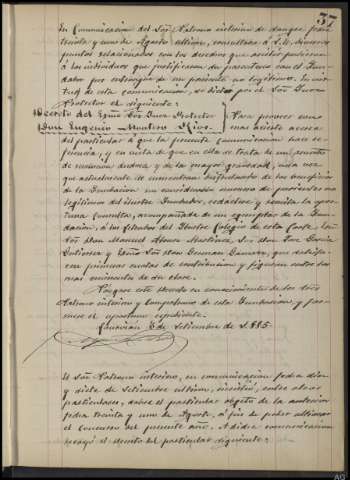 37
En Comunicacion del Sor Patrono interino de fecha
treinta y uno de Agosto ultimo, consultaba á S. E. diversos
puntos relacionados con los derechos que
á los individuos que justifiquen su parentesco con el Fun-
dador por entronque de un pariente no legítimo. En vir-
tud de esta comunicacion, se dictó por el Sor Juez
Protector el siguiente:
Decreto del Excmo Sor Juez Protector
Don Eugenio Montero Rios.
Para proveer con
mas acierto acerca
del particular á que la presente comunicacion hace re-
ferencia, y en vista de que en ella se trata de un asunto
de dudosa y de la mayor gravedad, una vez
que actualmente se encuentran disfrutando de los beneficios
de la Fundacion un considerable numero de parientes no
legítimos del ilustre Fundador, redáctese y remita la opor-
tuna consulta, acompañada de un ejemplar de la Fun-
dacion, á los Letrados del Ilustre Colegio de esta Corte,
Sor Don Manuel Alonso Martinez, Sor Don José Garcia
y Sor Don German Gamazo, que satisfa-
cen primeras cuotas de contribucion y figuran entre los
mas eminentes de su clase.
Póngase este acuerdo en conocimiento de los Sres
Patrono interino y Compatrono de esta Fundacion y for-
mese el oportuno expediente.
6 de Setiembre de 1885.
El Sor Patrono interino, en comunicacion fecha diez
y siete de Setiembre ultimo, insistió, entre otros
particulares, sobre el particular objeto de la anterior
fecha treinta y uno de Agosto, á fin de poder ultimar
el Concurso del presente año. A dicha comunicacion
recayó el decreto del particular siguiente: